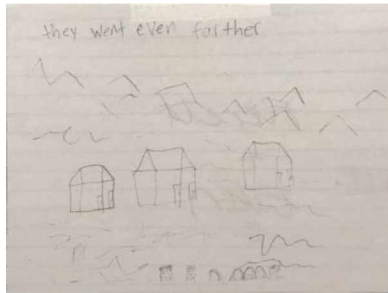 they went even farther